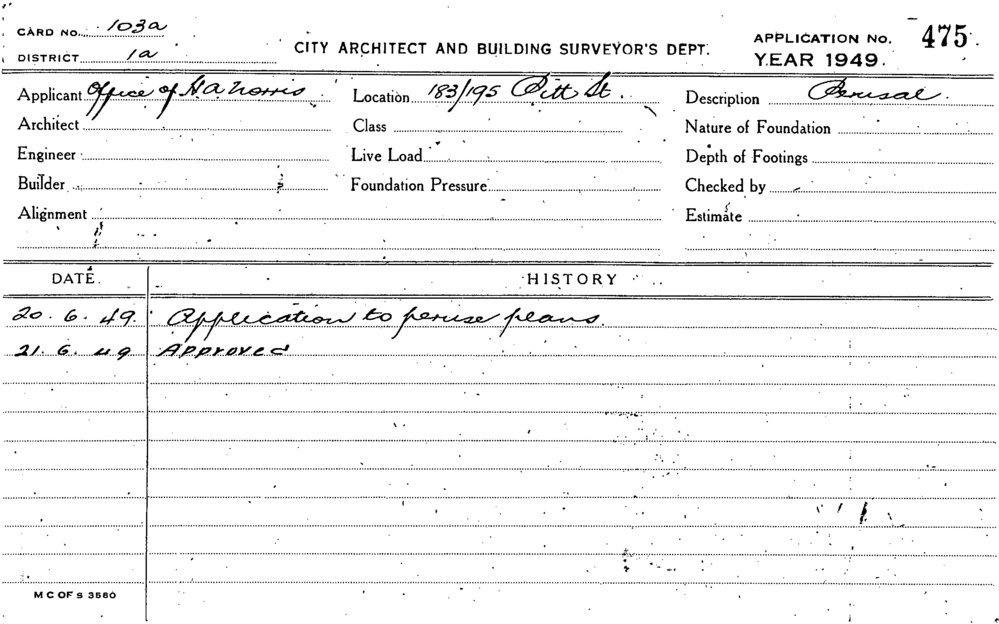 CARD No. 103a
DISTRICT 1a
CITY ARCHITECT AND BUILDING SURVEYOR'S DEPT.
APPLICATION No. 475
YEAR 1949.
Applicant Office of H A Norris Location 183/195 Pitt St. Description Perusal.
Architect Class Nature of Foundation
Engineer Live Load Depth of Footings
Builder Foundation Pressure Checked by
Alignment Estimate
DATE. HISTORY
20.6.49. Application to peruse plans.
21.6.49 Approved
M C OF S 3580